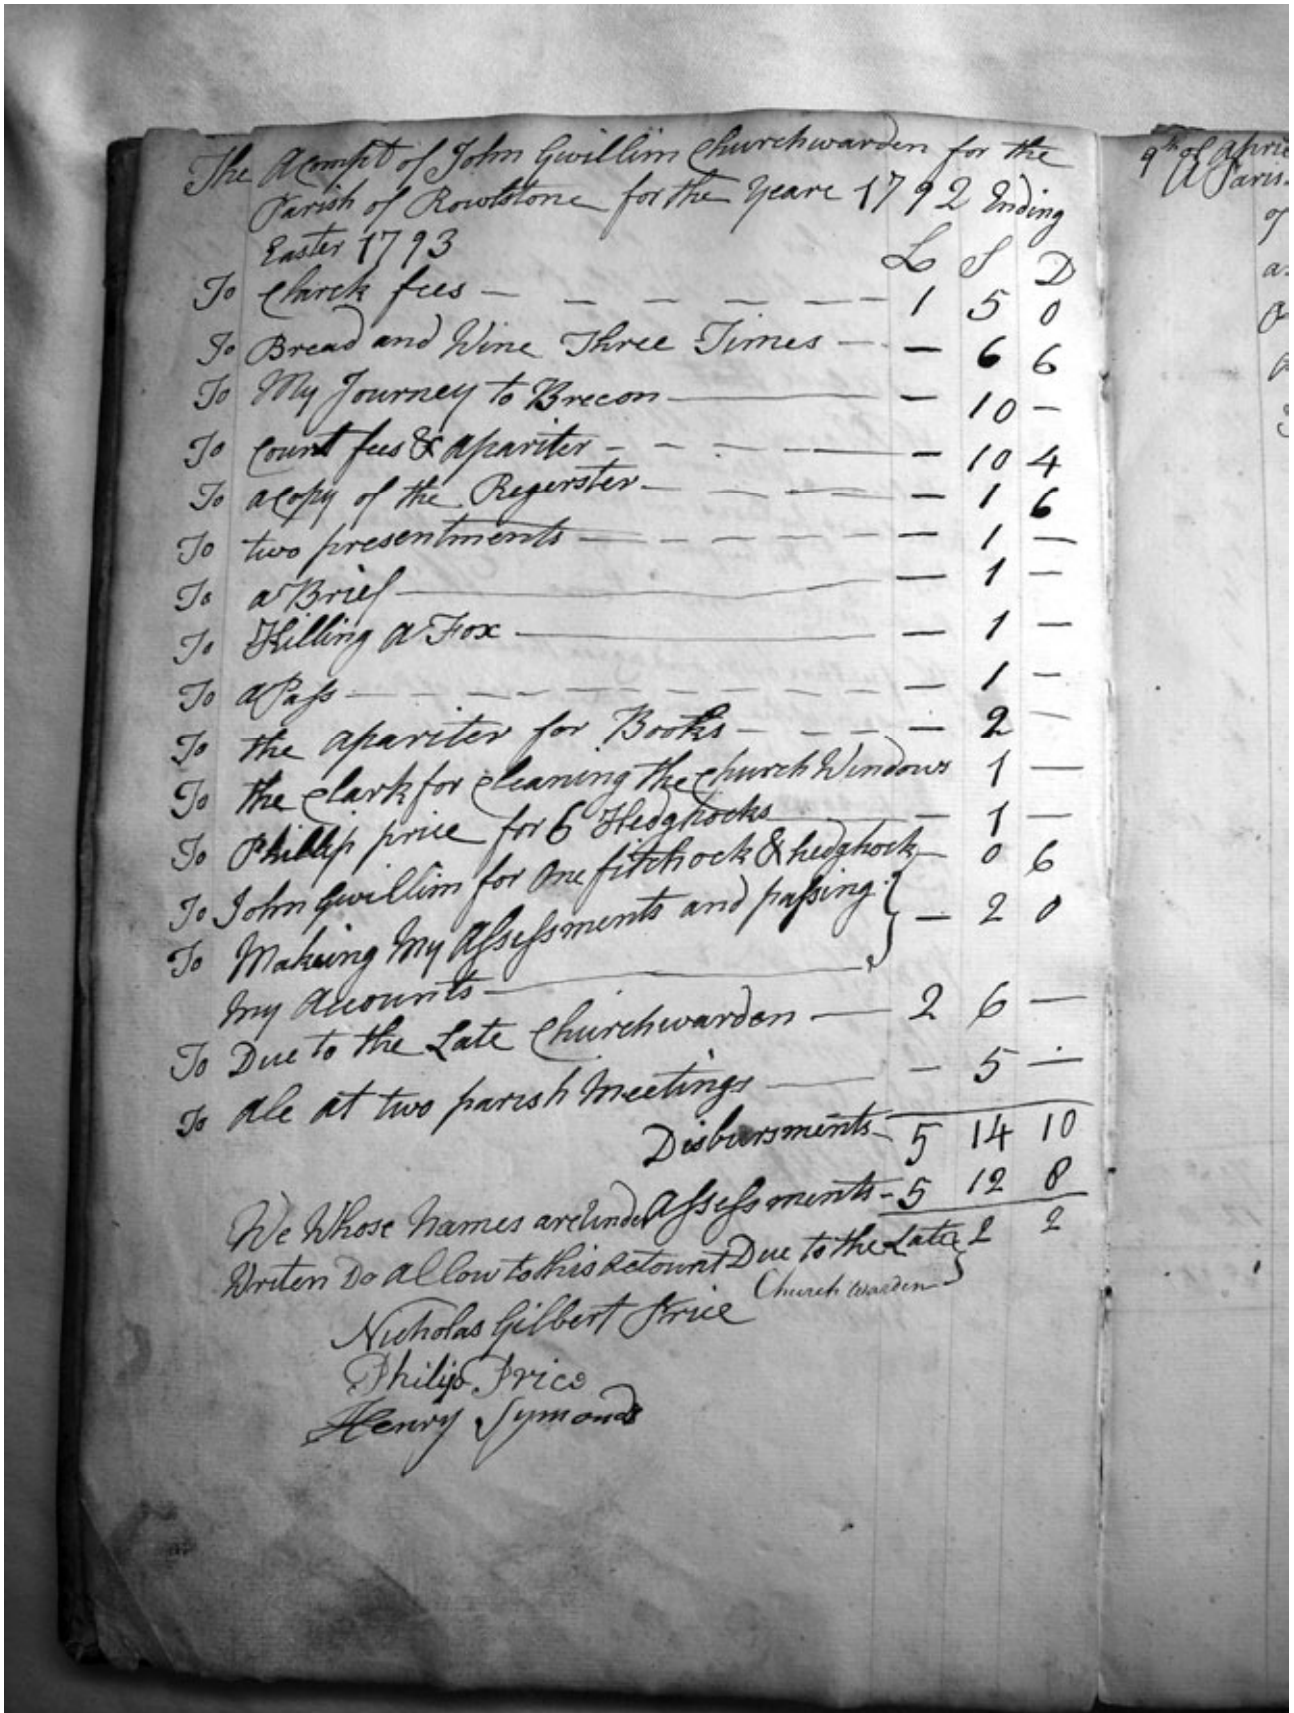 The Acompt of John Gwillim Churchwarden for the
Parish of Rowlstone for the Yeare 1792 Ending
Easter 1793 L S D
To Clarck fees - - - - - - - 1 5 0
To Bread and Wine Three Times - - 6 6
To My Journey to Brecon - 10 -
To Court fees & apariter - - - - 10 4
To a Copy of the Regerster - - - - 1 6
To two presentments - - - - - 1 -
To a Brief - 1 -
To Killing a Fox - 1 -
To a Pass - - - - - - - - 1 -
To the apariter for Books - - - - 2 -
To the Clark for Cleaning the Church Windows 1 -
To Phillip price for 6 Hedghocks - 1 -
To John Gwillim for One fitchock & hedghock - 0 6
To Making My Assessments and passing } - 2 0
My Accounts
To Due to the Late Churchwarden - 2 6 -
To Ale at two parish Meetings - - 5 -
Disbursments - 5 14 10
We Whose Names are Under Assessments - 5 12 8
Writen Do Allow to this Actount Due to the Late } 2 2
Church warden
Nicholas Gilbert Price
Philip Price
Henry Symonds
9th of
A Paris
of